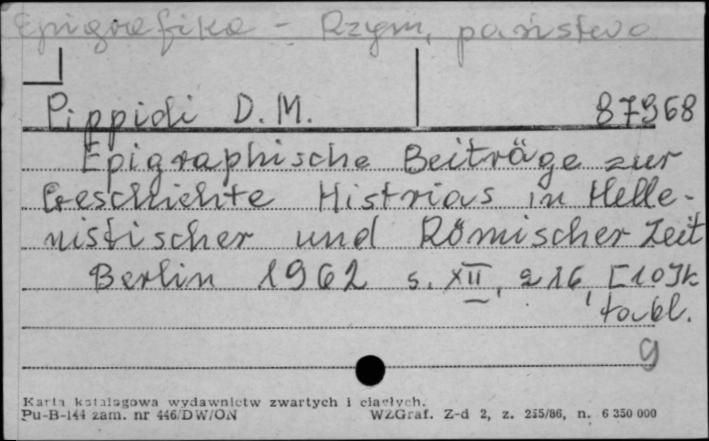 Epigrafika - Rzym, państwo
Pippidi D.M. 87968
Epigraphische Beiträge zur
Geschichte Histrias in Helle-
nistischer und Römischer Zeit
Berlin 1962 s. XII, 216, [10]k
tabl.
g
Karta katalogowa wydawnictw zwartych i ciągłych.
Pu-B-144 zam. nr 446/DW/ON WZGraf. Z-d 2, z. 255/86, n. 6 350 000